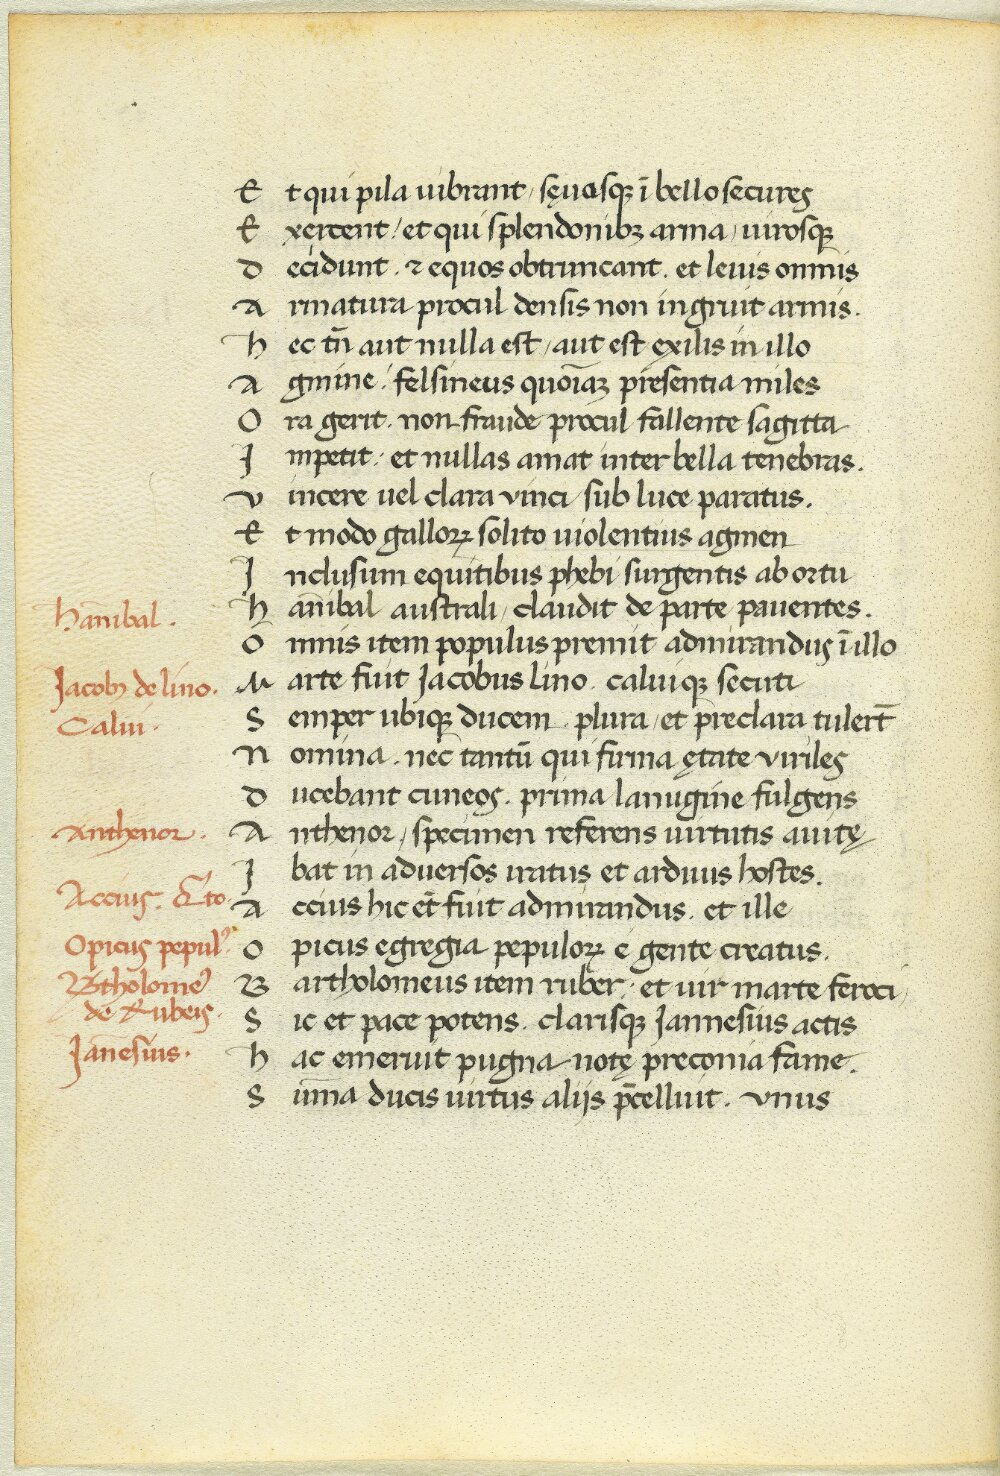 Et qui pila uibrant / sęuasqꝫ ī bello secures
Exercent / et qui splendonibꝫ arma / uirosqꝫ
Decidunt . ⁊ equos obtruncant . et leuis omnis
Armatura procul densis non ingruit armis .
Hec tn̄ aut nulla est / aut est exilis in illo
Agmine . felsineus quoīaꝫ presentia miles
Ora gerit . non fraude procul fallente sagitta
Impetit . et nullas amat inter bella tenebras .
Vincere uel clara vinci / sub luce paratus .
Et modo galloꝝ solito uiolentius agmen
Inclusum equitibus phebi surgentis ab ortu
Hanibal .
Hānibal australi / claudit de parte pauentes .
Omnis item populus premit admirandus ī illo
Jacobꝫ de lino .
Marte fuit Jacobus lino . caluiqꝫ secuti
Calui .
Semper ubiqꝫ ducem . plura / et preclara tulert̄
Nomina . nec tantū qui firma ętate viriles
Ducebant cuneos . prima lanugine fulgens
Anthenor .
Anthenor / specimen referens uirtutis auitę
Ibat in aduersos iratus et arduus hostes .
Accius .
Accius hic et̄ fuit admirandus . et ille
Opicus pepulꝰ
Opicus egregia pepuloꝝ e gente creatus .
Btholomeꝰ
Bartholomeus item ruber . et uir marte feroci /
de Rubeis .
Sic et pace potens . clarisqꝫ Jannesius actis
Janesius .
Hac emeruit pugna notę preconia fame .
Sum̄a ducis uirtus alijs p̄celluit . vnus